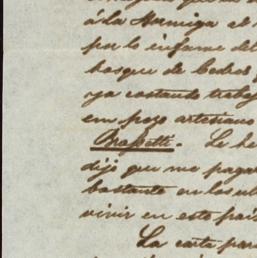 á la Hormiga el
por lo infame del
bosque de Cedros
ya costando trabaj
em pozo artesiano
. Le he
dijo que me pagar
bastante en los ul
vivir en este país
La carta par